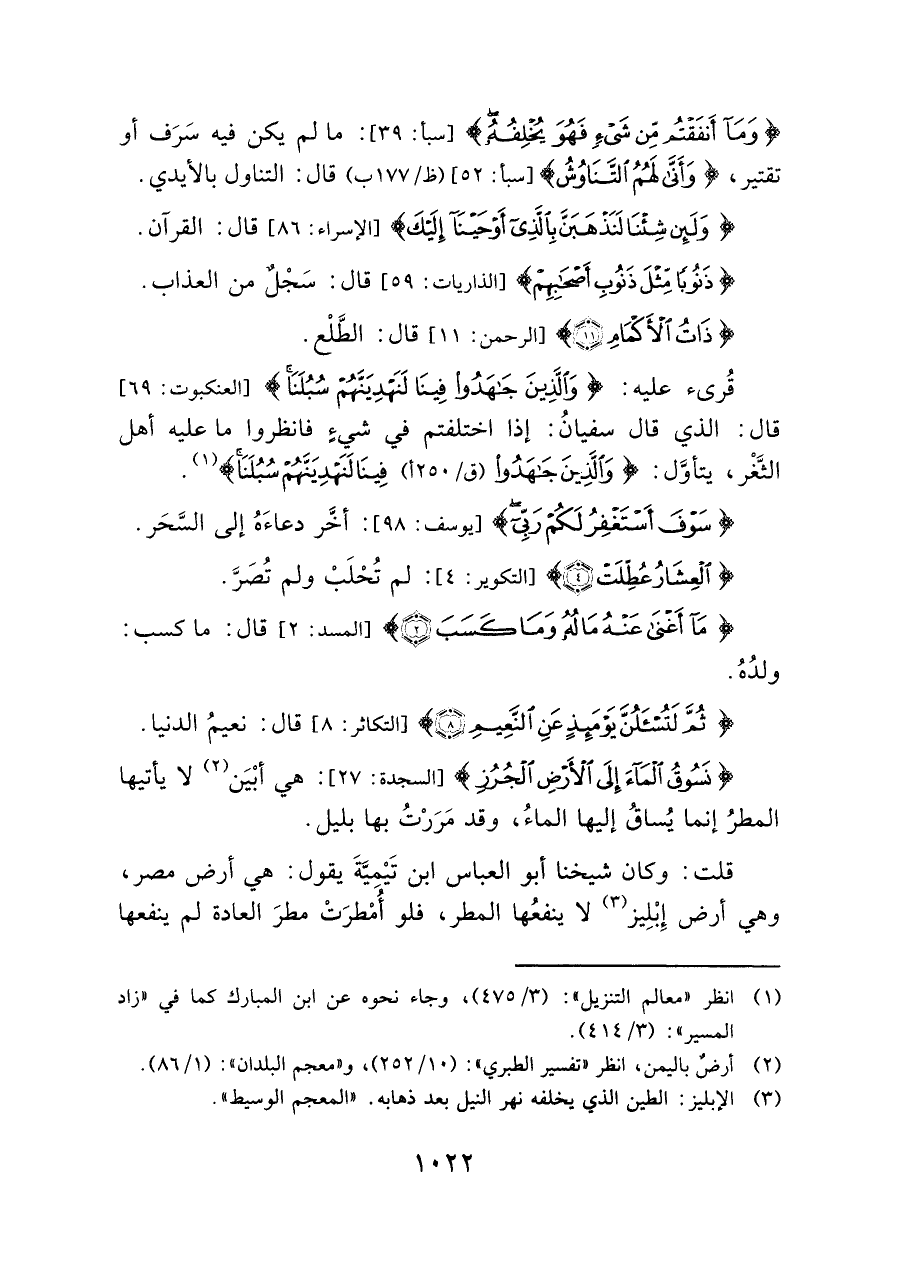 ﴿ وَمَآ أَنفَقْتُم مِّن شَىْءٍ فَهُوَ يُخْلِفُهُۥۖ ﴾ [سبأ: ٣٩]: ما لم يكن فيه سَرَف أو
تقتير، ﴿ وَأَنَّىٰ لَهُمُ ٱلتَّنَاوُشُ ﴾ [سبأ: ٥٢] (ظ/١٧٧ب) قال: التناول بالأيدي.
﴿ وَلَئِن شِئْنَا لَنَذْهَبَنَّ بِٱلَّذِىٓ أَوْحَيْنَآ إِلَيْكَ ﴾ [الإسراء: ٨٦] قال: القرآن.
﴿ ذَنُوبًا مِّثْلَ ذَنُوبِ أَصْحَٰبِهِمْ ﴾ [الذاريات: ٥٩] قال: سَجْلٌ من العذاب.
﴿ ذَاتُ ٱلْأَكْمَامِ ١١ ﴾ [الرحمن: ١١] قال: الطَّلْع.
قُرىء عليه: ﴿ وَٱلَّذِينَ جَٰهَدُوا۟ فِينَا لَنَهْدِيَنَّهُمْ سُبُلَنَاۚ ﴾ [العنكبوت: ٦٩]
قال: الذي قال سفيانُ: إذا اختلفتم في شيءٍ فانظروا ما عليه أهل
الثَّغْر، يتأوَّل: ﴿ وَٱلَّذِينَ جَٰهَدُوا۟ (ق/٢٥٠أ) فِينَا لَنَهْدِيَنَّهُمْ سُبُلَنَاۚ ﴾(١).
﴿ سَوْفَ أَسْتَغْفِرُ لَكُمْ رَبِّىٓۖ ﴾ [يوسف: ٩٨]: أخَّر دعاءَهُ إلى السَّحَر.
﴿ ٱلْعِشَارُ عُطِّلَتْ ٤ ﴾ [التكوير: ٤]: لم تُحْلَبْ ولم تُصَرَّ.
﴿ مَآ أَغْنَىٰ عَنْهُ مَالُهُۥ وَمَا كَسَبَ ٢ ﴾ [المسد: ٢] قال: ما كسب:
ولدُهُ.
﴿ ثُمَّ لَتُسْـَٔلُنَّ يَوْمَئِذٍ عَنِ ٱلنَّعِيمِ ٨ ﴾ [التكاثر: ٨] قال: نعيمُ الدنيا.
﴿ نَسُوقُ ٱلْمَآءَ إِلَى ٱلْأَرْضِ ٱلْجُرُزِ ﴾ [السجدة: ٢٧]: هي أبْيَن(٢) لا يأتيها
المطرُ إنما يُساقُ إليها الماءُ، وقد مَرَرْتُ بها بليل.
قلت: وكان شيخنا أبو العباس ابن تَيْمِيَّةَ يقول: هي أرض مصر،
وهي أرض إبْلِيز(٣) لا ينفعُها المطر، فلو أُمْطرَتْ مطرَ العادة لم ينفعها
(١) انظر «معالم التنزيل»: (٣/ ٤٧٥)، وجاء نحوه عن ابن المبارك كما في «زاد
المسير»: (٣/ ٤١٤).
(٢) أرضٌ باليمن، انظر «تفسير الطبري»: (١٠/ ٢٥٢)، و«معجم البلدان»: (١/ ٨٦).
(٣) الإبليز: الطين الذي يخلفه نهر النيل بعد ذهابه. «المعجم الوسيط».
١٠٢٢